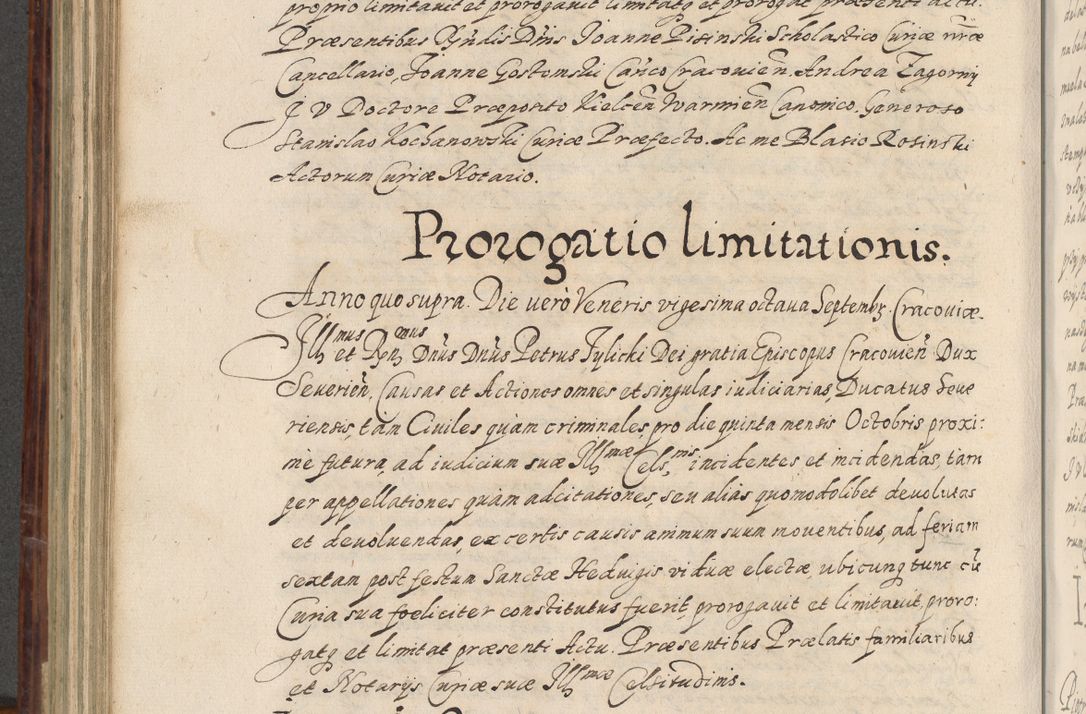 proprio limitavit et prorogavit limitatq et prorogat præsenti actu.
Præsentibus Rñdis Dñis Joanne Pisinski Scholastico Curiæ nræ
Cancellario, Joanne Gostomski Cañco Cracovień. Andrea Zagorny
J V Doctore Præposito Kielceń Warmień Canonico. Generoso
Stanislao Kochanowski Curiæ Præfecto. Ac me Blasio Rosinski
Actorum Curiæ Notario.
Prorogatio limitationis.
Anno quo supra. Die verò Veneris vigesima octava Septembr. Cracoviæ.
Illmus et Rnmus Dñus Dñus Petrus Tylicki Dei gratia Episcopus Cracovień Dux
Severień. Causas et Actiones omnes et singulas iudiciarias, Ducatus Seve
riensis, tam Civiles quàm criminales, pro die quinta mensis Octobris proxi:
mè futura, ad iudicium suæ Illmæ Celsnis incidentes et incidendas, tam
per appellationes quàm adcitationes, seu alias quomodolibet devolutas
et devoluendas, ex certis causis animum suum moventibus, ad feriam
sextam post festum Sanctæ Hedvigis viduæ electæ, ubicunq tunc cũ
Curia sua fœliciter constitutus fuerit, prorogavit et limitavit, proro:
gatq et limitat præsenti Actu. Præsentibus Prælatis familiaribus
et Notarijs Curiæ suæ Illmæ Celsitudinis.